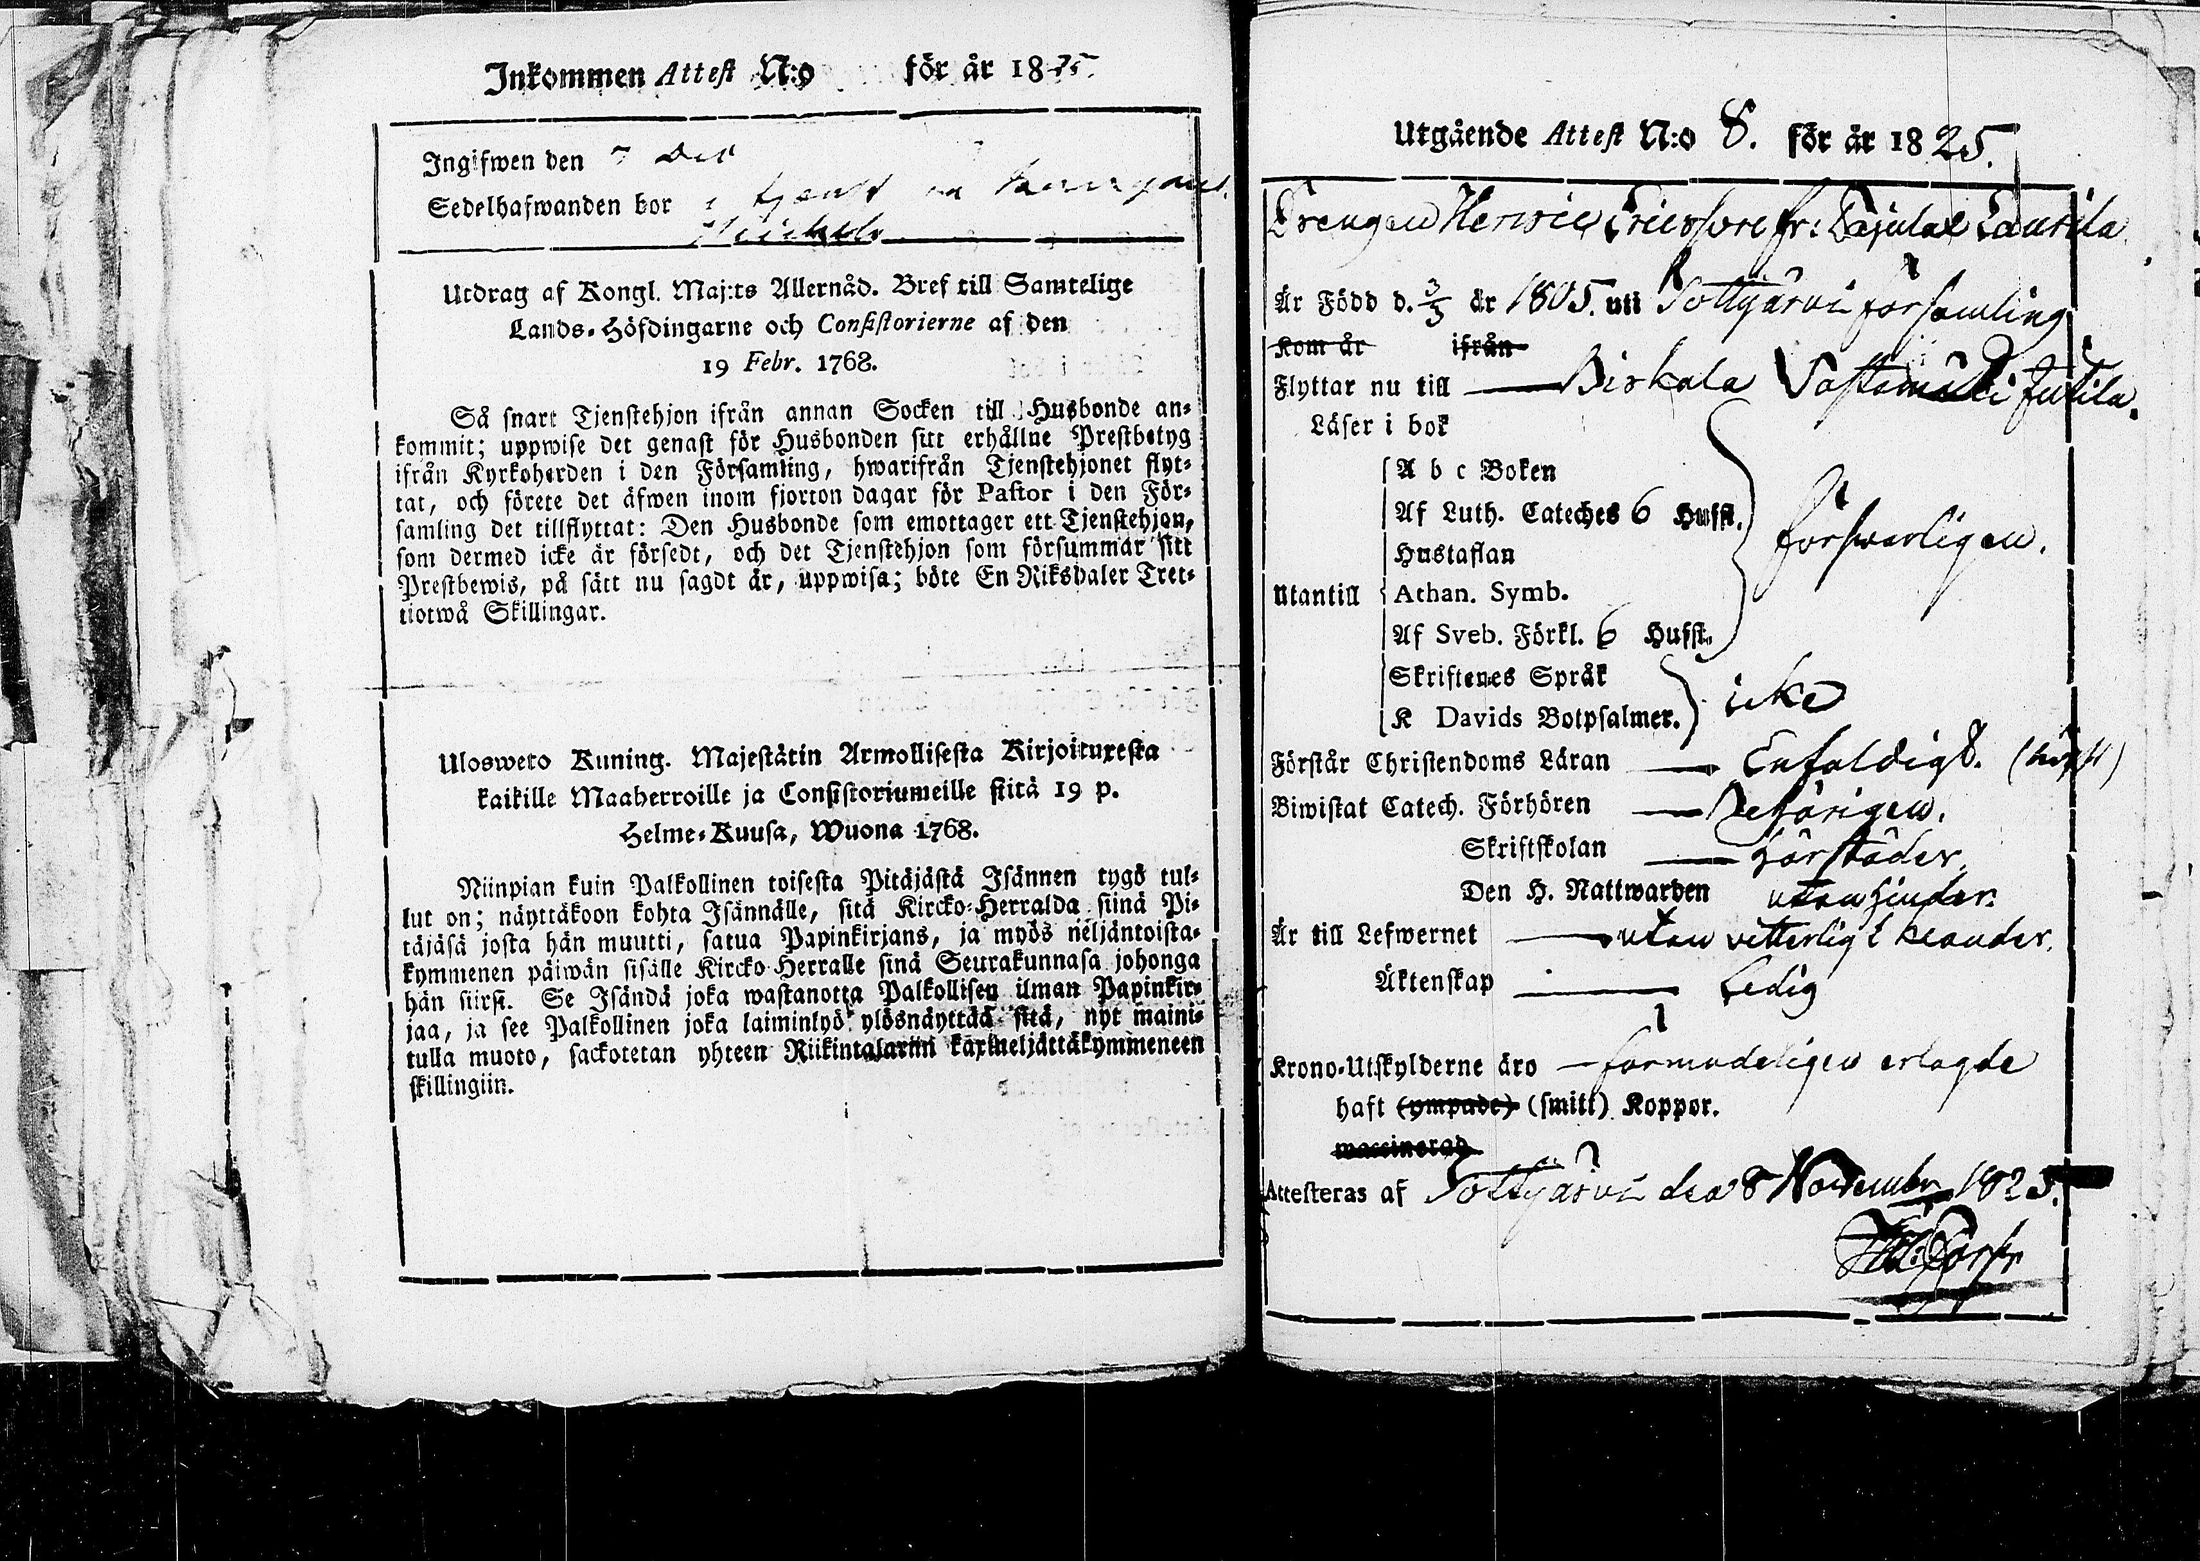 Inkommen Attest N:o för år 1825.
Ingifwen den 7 Dec
Sedelhafwanden bor i tjenst
Utdrag af Kongl. Maj:ts Allernåd. Bref till Samtelige
Lands-Höfdingarne och Consistorierne af den
19 Febr. 1768.
Så snart Tjenstehjon ifrån annan Socken till Husbonde an-
kommit; uppwise det genast för Husbonden sitt erhållne Prestbetyg
ifrån Kyrkoherden i den Församling, hwarifrån Tjenstehjonet flyt-
tat, och förete det äfwen inom fjorton dagar för Pastor i den För-
samling det tillflyttat: Den Husbonde som emottager ett Tjenstehjon,
som dermed icke är försedt, och det Tjenstehjon som försummar sitt
Prestbewis, på sätt nu sagdt är, uppwisa; böte En Riksdaler Tret-
tiotwå Skillingar.
Ulosweto Kuning. Majestätin Armollisesta Kirjoituxesta
kaikille Maaherroille ja Consistoriumeille siitä 19 p.
Helme-Kuusa, Wuona 1768.
Niinpian kuin Palkollinen toisesta Pitäjästä Isännen tygö tul-
lut on; näyttäkoon kohta Isännälle, sitä Kircko-Herralda siinä Pi-
täjäsä josta hän muutti, satua Papinkirjans, ja myös neljäntoista-
kymmenen päiwän sisälle Kircko-Herralle sinä Seurakunnasa johonga
hän siirsi. Se Isändä joka wastanotta Palkollisen ilman Papinkir-
jaa, ja see Palkollinen joka laiminlyö ylösnäyttää sitä, nyt maini-
tulla muoto, sackotetan yhteen Riikintalariin kaxineljättäkymmeneen
skillingiin.
Utgående Attest N:o 8. för år 1825.
Drengen Henric Ericsson fr: Laurila
Är Född d. 3/3 år 1805. uti Tottijärvi församling
Kom år ifrån
Flyttar nu till Birkala Jutila.
Läser i bok
A b c Boken
Af Luth. Cateches 6 Hufst.
Hustaflan
försvarligen.
Utantill Athan. Symb.
Af Sveb. Förkl. 6 Hufst.
Skriftenes Språk
icke
K Davids Botpsalmer.
Förstår Christendoms Läran Enfaldigt.
Biwistat Catech. Förhören behörigen.
Skriftskolan härstädes
Den H. Nattwarden utan hinder.
Är till Lefwernet utan vitterligt klander.
Äktenskap Ledig
Krono-Utskylderne äro förmodeligen erlagde
haft (ympade) (smitt) Koppor.
waccinerad
Attesteras af Tottijärvi den 8 November 1825.